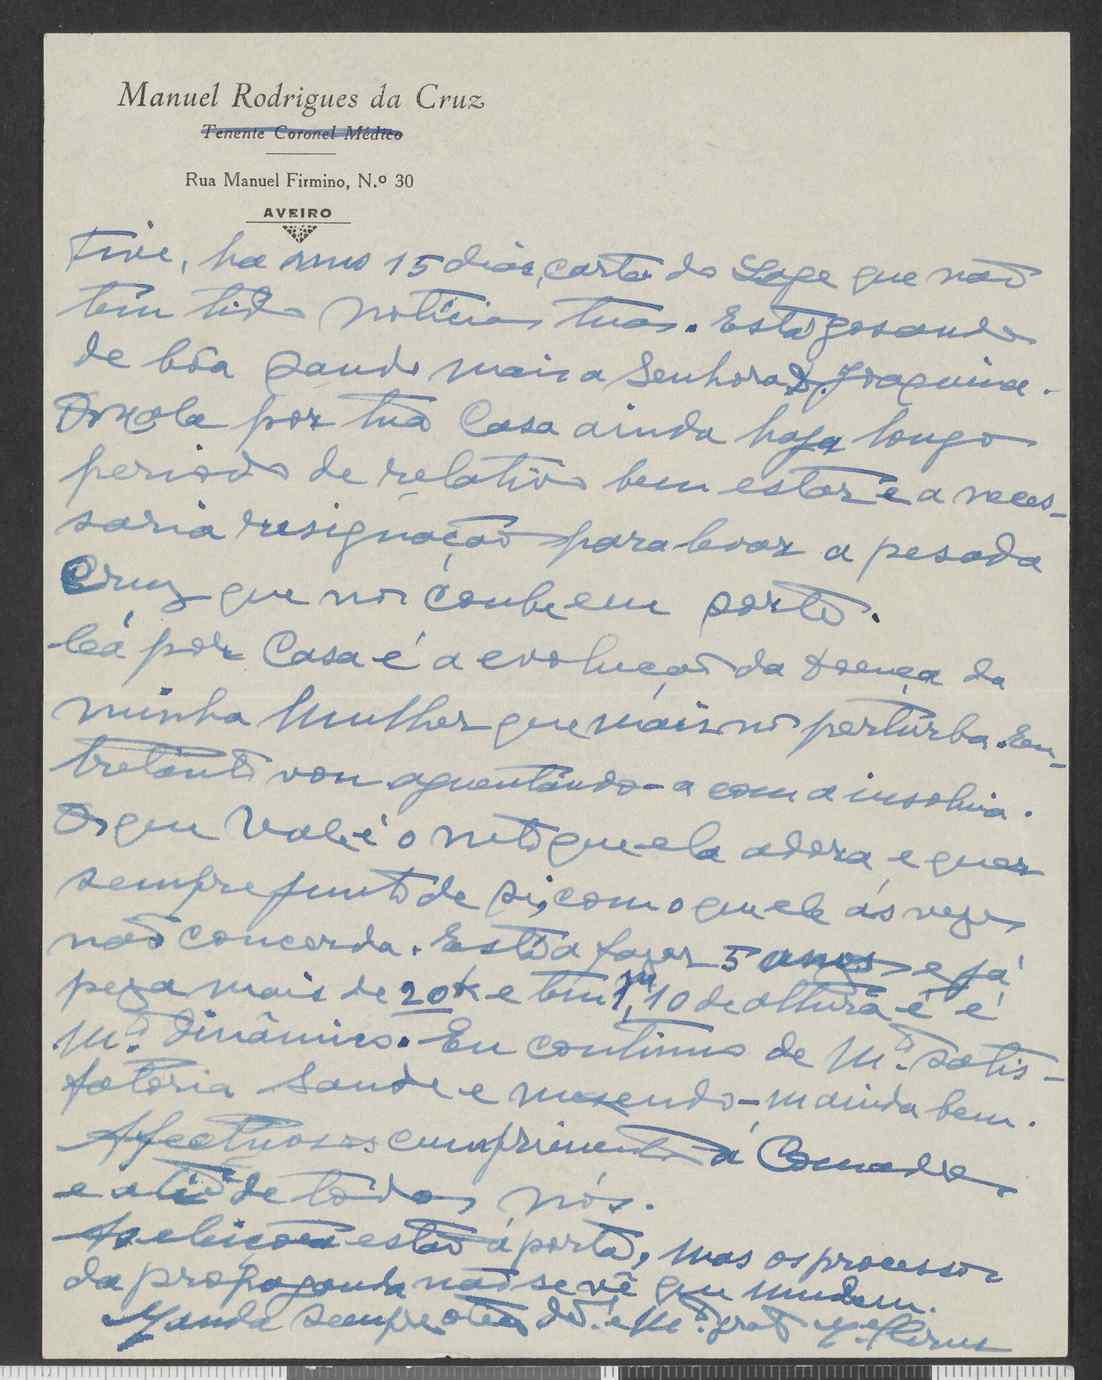 Manuel Rodrigues da Cruz
Tenente Coronel Médico
Rua Manuel Firmino, N.º 30
AVEIRO
Tive, ha uns 15 dias, carta do Lage que não
tem tido noticias tuas. Está gosando
de bôa saude mais a Senhora D. Joaquina.
Oxalá por tua Casa ainda haja longo
periodo de relativo bem estar e a neces-
saria resignação para levar a pesada
Cruz que nos coube em sorte.
Cá por Casa é a evolução da doença da
minha Mulher que mais nos perturba. En-
tretanto vou aguentando-a com a insolina.
O que vale é o neto que ela adora e quer
sempre junto de si, com o que ele ás vezes
não concorda. Está a fazer 5 anos e já
peza mais de 20k e tem 1m,10 de altura e é
Mto. dinâmico. Eu continuo de Mto. satis-
fatória saude e mexendo-m ainda bem.
Afectuosos cumprimentos á Comadre
e a ti de todos nós.
As eleições estão á porta, mas os processos
da propaganda não se vê que mudem.
Manda sempre o teu